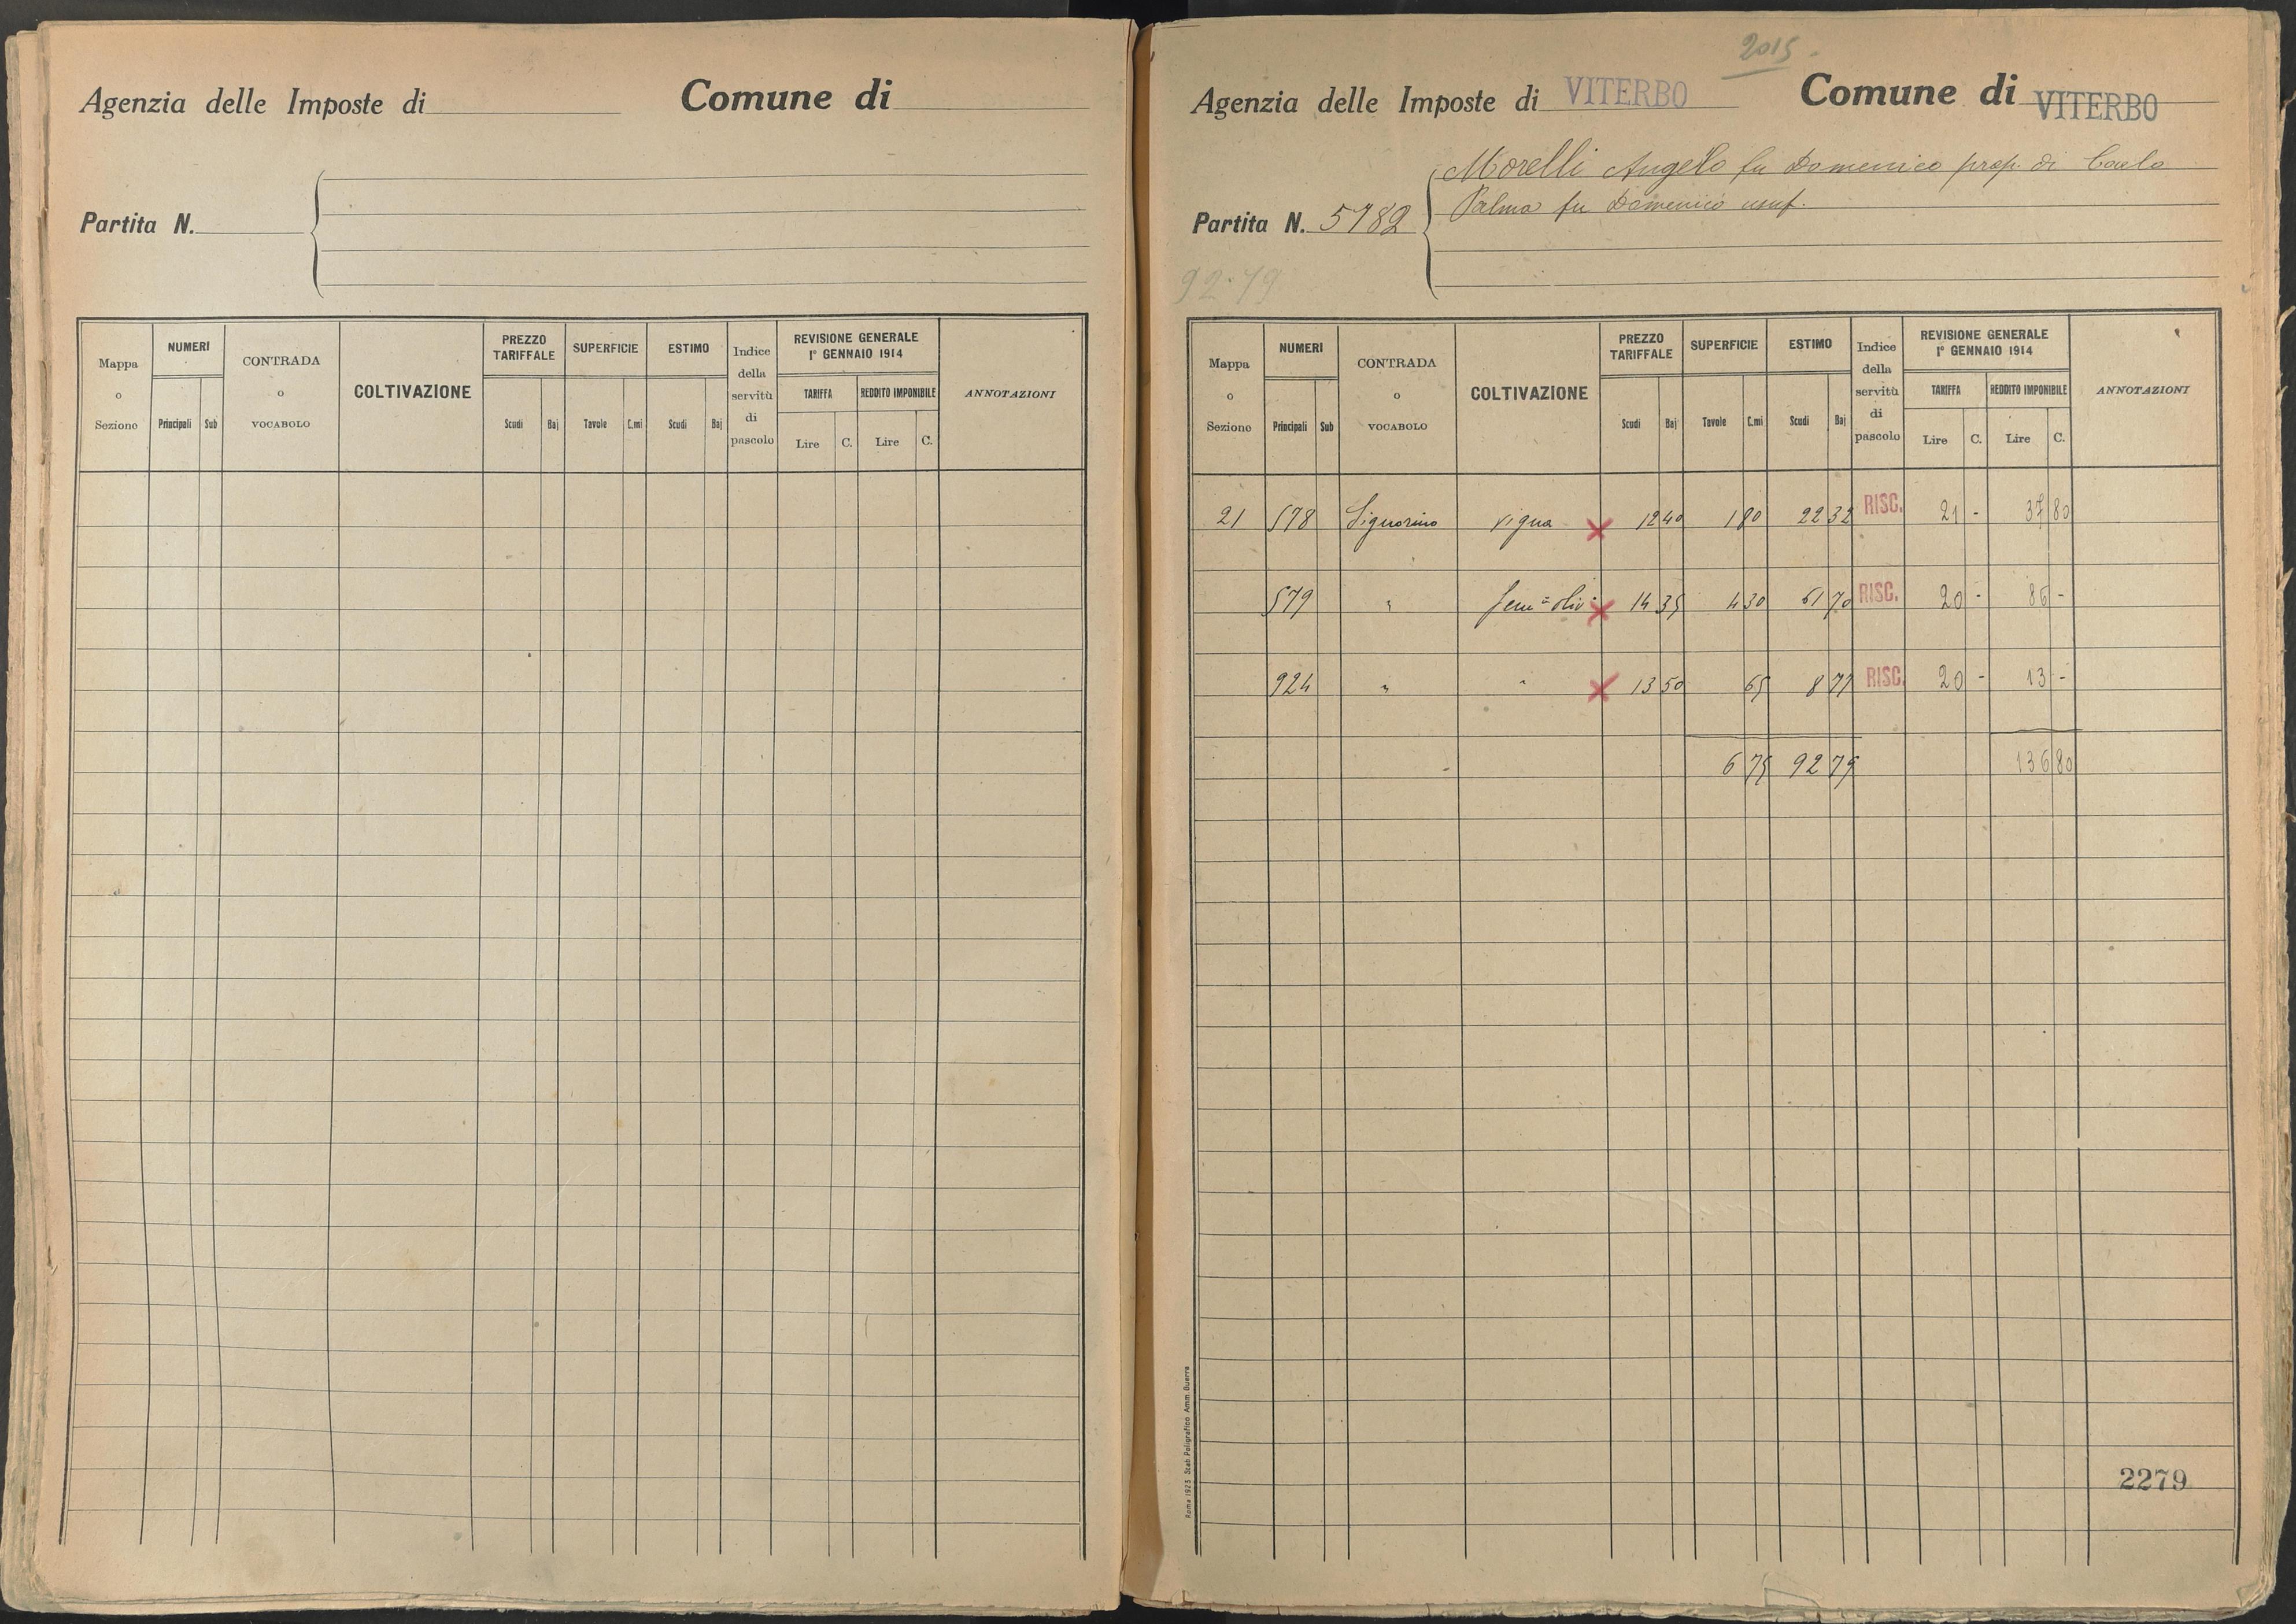 Agenzia delle Imposte di Comune di
Partita N.
Mappa o Sezione NUMERI Principali Sub CONTRADA o VOCABOLO COLTIVAZIONE PREZZO TARIFFALE Scudi Baj SUPERFICIE Tavole C.mi ESTIMO Scudi Baj Indice della servitù di pascolo REVISIONE GENERALE 1° GENNAIO 1914 TARIFFA Lire C. REDDITO IMPONIBILE Lire C. ANNOTAZIONI
2015.
Agenzia delle Imposte di VITERBO Comune di VITERBO
Morelli Angelo fu Domenico prop. di Carlo
Palma fu Domenico usuf.
Partita N. 5782
92.79
Mappa o Sezione NUMERI Principali Sub CONTRADA o VOCABOLO COLTIVAZIONE PREZZO TARIFFALE Scudi Baj SUPERFICIE Tavole C.mi ESTIMO Scudi Baj Indice della servitù di pascolo REVISIONE GENERALE 1° GENNAIO 1914 TARIFFA Lire C. REDDITO IMPONIBILE Lire C. ANNOTAZIONI
21 578 Signorino vigna x 12 40 1 80 22 32 RISC. 21 - 37 80
579 " sem= oliv: x 14 35 4 30 61 70 RISC. 20 - 86 -
924 " " x 13 50 65 8 77 RISC. 20 - 13 -
6 75 92 79 136 80
Roma 1925 Stab. Poligrafico Amm. Guerra
2279